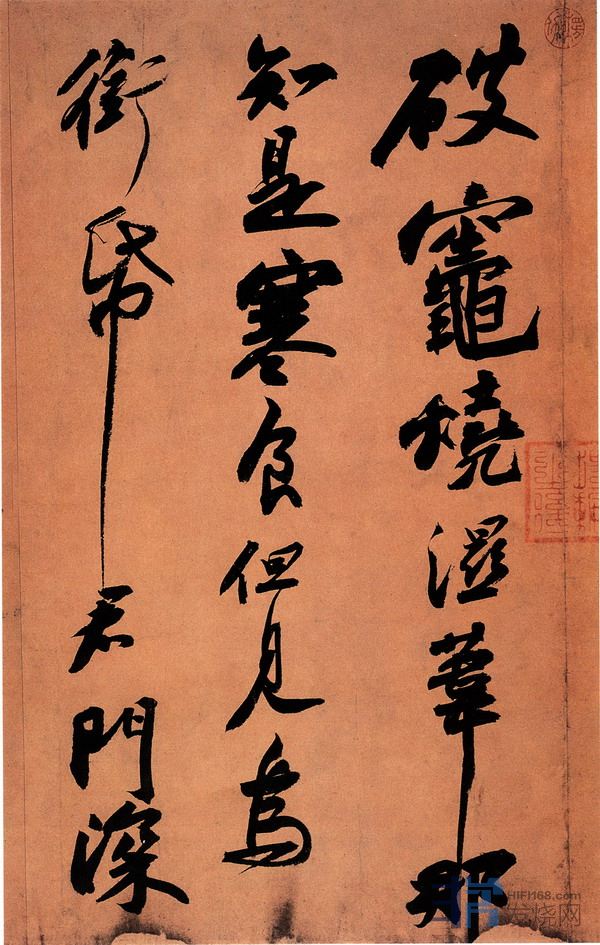 破竈燒濕葦那
知是寒食但見烏
銜帋君門深
HIFI168.com
发烧网